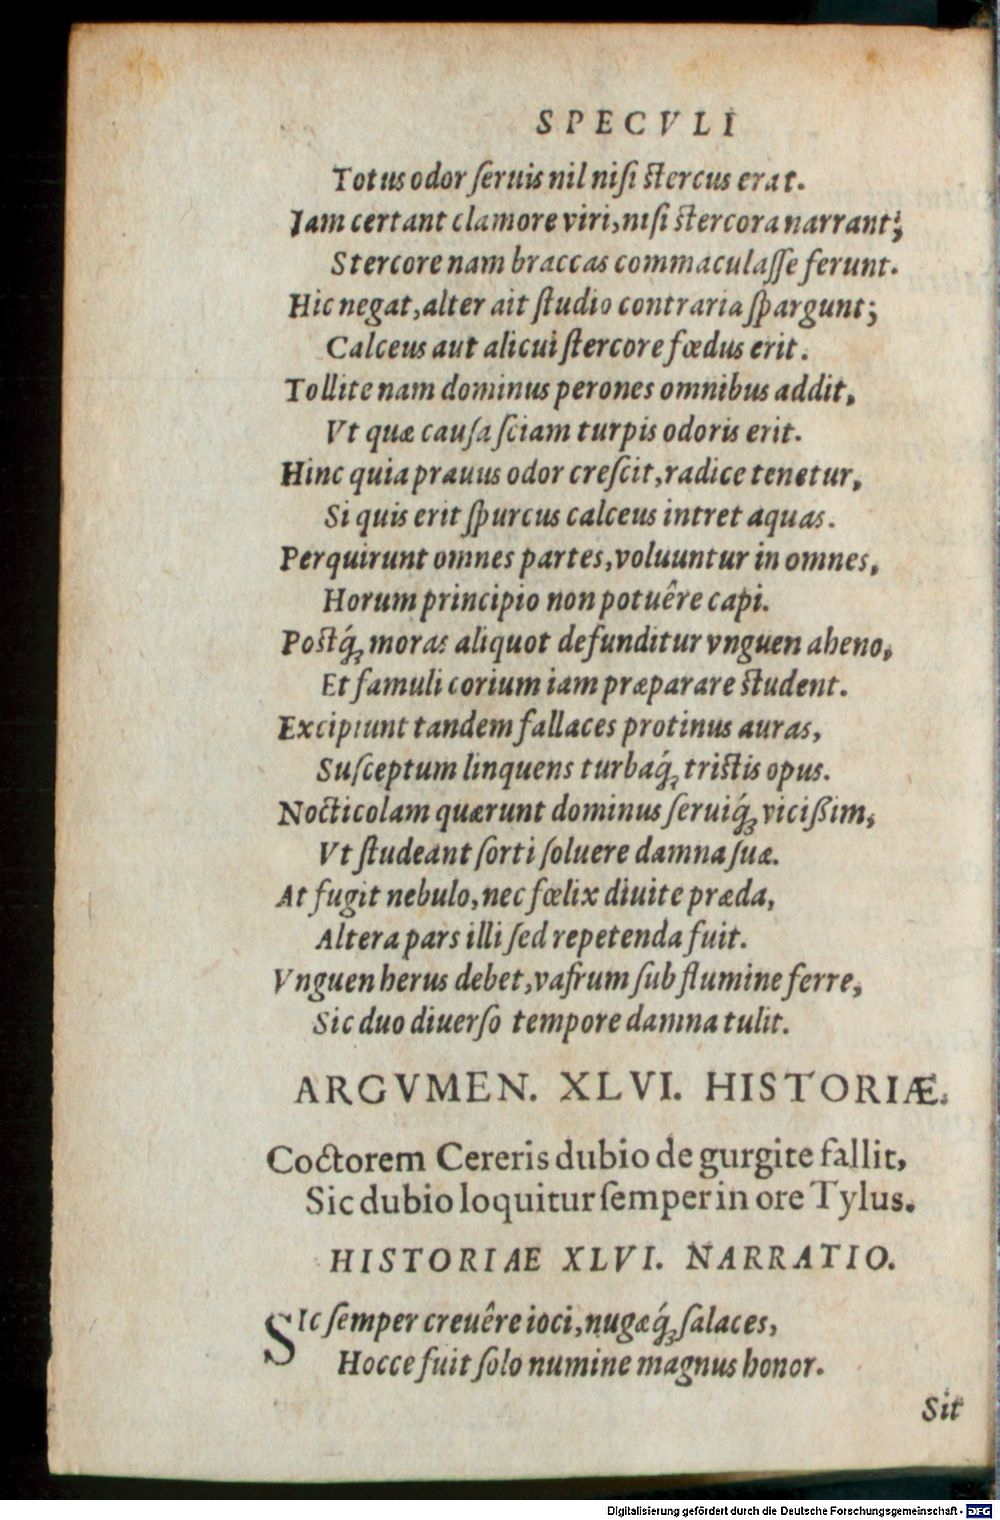 SPECVLI
Totus odor ſeruis nil niſi stercus erat.
Iam certant clamore viri, niſi stercora narrant;
Stercore nam braccas commaculaſſe ferunt.
Hic negat, alter ait ſtudio contraria ſpargunt;
Calceus aut alicui ſtercore fœdus erit.
Tollite nam dominus perones omnibus addit,
Vt quæ cauſa ſciam turpis odoris erit.
Hinc quia prauus odor creſcit, radice tenetur,
Si quis erit ſpurcus calceus intret aquas.
Perquirunt omnes partes, voluuntur in omnes,
Horum principio non potuêre capi.
Postq́ꝫ moras aliquot defunditur vnguen aheno,
Et famuli corium iam præparare student.
Excipiunt tandem fallaces protinus auras,
Suſceptum linquens turbaq́ꝫ tristis opus.
Nocticolam quærunt dominus ſeruiq́ꝫ vicißim,
Vt ſtudeant ſorti ſoluere damna ſuæ.
At fugit nebulo, nec fœlix diuite præda,
Altera pars illi ſed repetenda fuit.
Vnguen herus debet, vafrum ſub flumine ferre,
Sic duo diuerſo tempore damna tulit.
ARGVMEN. XLVI. HISTORIÆ.
Coctorem Cereris dubio de gurgite fallit,
Sic dubio loquitur ſemper in ore Tylus.
HISTORIAE XLVI. NARRATIO.
SIc ſemper creuêre ioci, nugæq́ꝫ ſalaces,
Hocce fuit ſolo numine magnus honor.
Sit
Digitalisierung gefördert durch die Deutsche Forschungsgemeinschaft - DFG